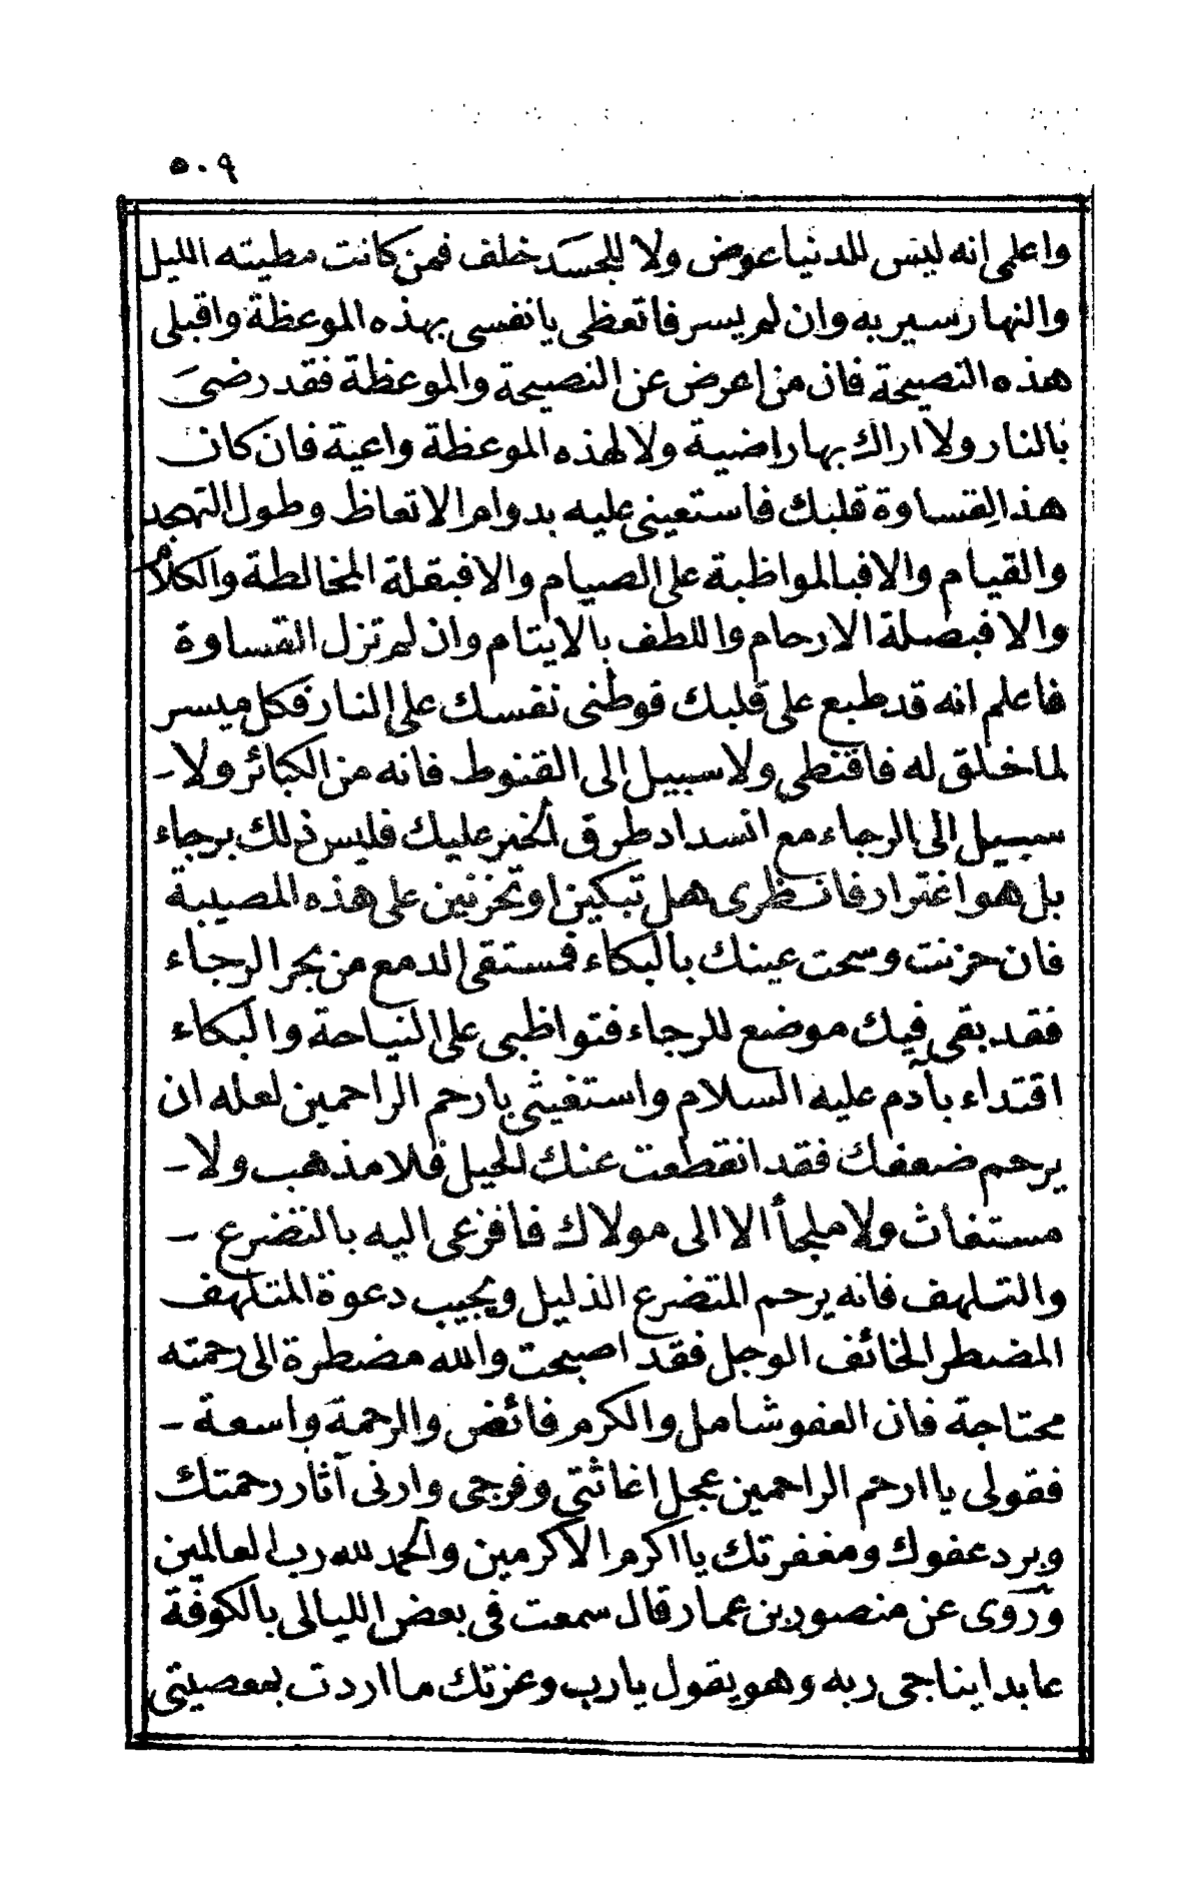 ٥٠٩
واعلمى انه ليس للدنيا عوض ولا للجسد خلف فمن كانت مطيته الليل
والنهار سير به وان لم يسر فاتعظى يا نفسى بهذه الموعظة واقبلى
هذه النصيحة فان من اعرض عن النصيحة والموعظة فقد رضى
بالنار ولا اراك بها راضية ولا لهذه الموعظة واعية فان كان
هذا لقساوة قلبك فاستعينى عليه بدوام الاتعاظ وطول التهجد
والقيام والا فبالمواظبة على الصيام والا فبقلة المخالطة والكلام
والا فبصلة الارحام واللطف بالايتام وان لم تزل القساوة
فاعلم انه قد طبع على قلبك فوطنى نفسك على النار فكل ميسر
لما خلق له فاقنطى ولا سبيل الى القنوط فانه من الكبائر ولا -
سبيل الى الرجاء مع انسداد طرق الخير عليك فليس ذلك برجاء
بل هو اغترار فانظرى هل تبكين او تحزنين على هذه المصيبة
فان حزنت وسحت عينك بالبكاء فمستقى الدمع من بحر الرجاء
فقد بقى فيك موضع للرجاء فتواظبى على النياحة والبكاء
اقتداء بآدم عليه السلام واستغيثى بارحم الراحمين لعله ان
يرحم ضعفك فقد انقطعت عنك الحيل فلا مذهب ولا -
مستغاث ولا ملجأ الا الى مولاك فافزعى اليه بالتضرع -
والتلهف فانه يرحم المتضرع الذليل ويجيب دعوة المتلهف
المضطر الخائف الوجل فقد اصبحت والله مضطرة الى رحمته
محتاجة فان العفو شامل والكرم فائض والرحمة واسعة -
فقولى يا ارحم الراحمين عجل اغاثتى وفرجى وارنى آثار رحمتك
وبرد عفوك ومغفرتك يا اكرم الاكرمين والحمد لله رب العالمين
وروى عن منصور بن عمار قال سمعت فى بعض الليالى بالكوفة
عابدا يناجى ربه وهو يقول يا رب وعزتك ما اردت بمعصيتى